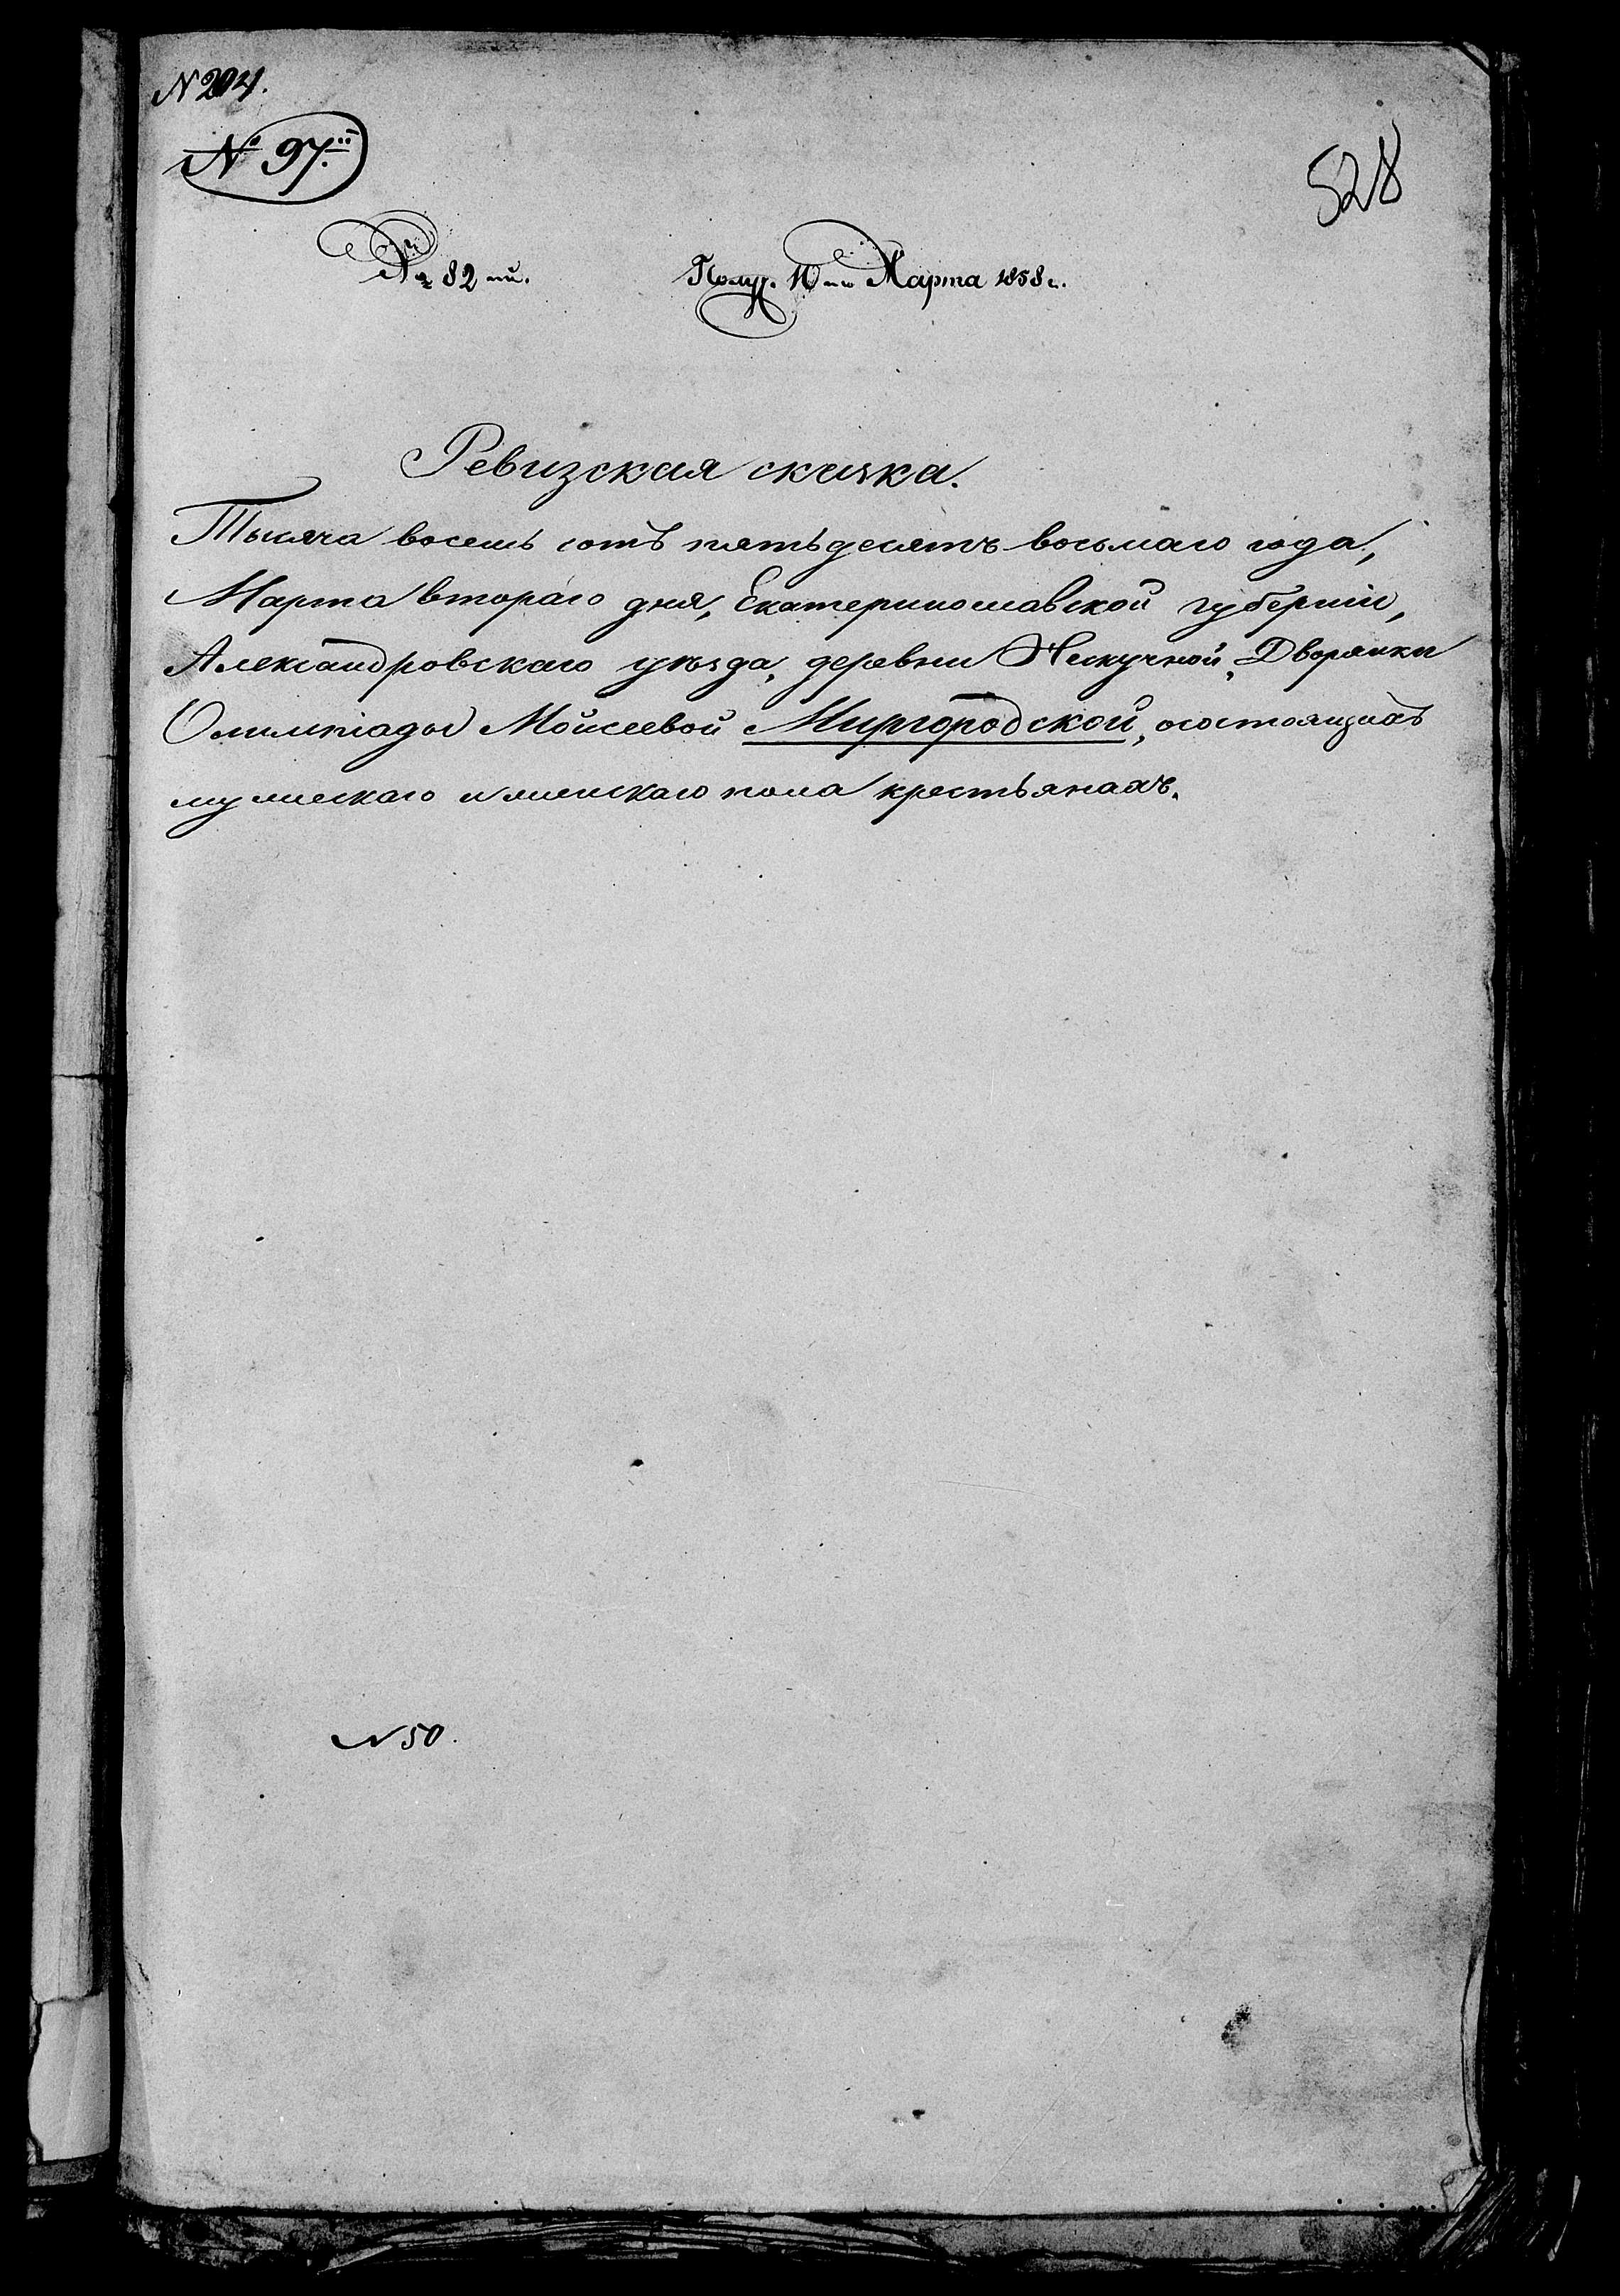 N 204.
№ 97.й
528
№ 82 ий.
Получ. 10го Марта 1858 г.
Ревизская сказка.
Тысяча восемь сотъ пятьдесятъ восьмаго года,
Марта втораго дня, Екатеринославской губерніи,
Александровскаго уѣзда, деревни Нескучной, Дворянки
Олимпіады Мойсеевой Миргородской, о состоящихъ
мужескаго и женскаго пола крестьянахъ.
N 50.